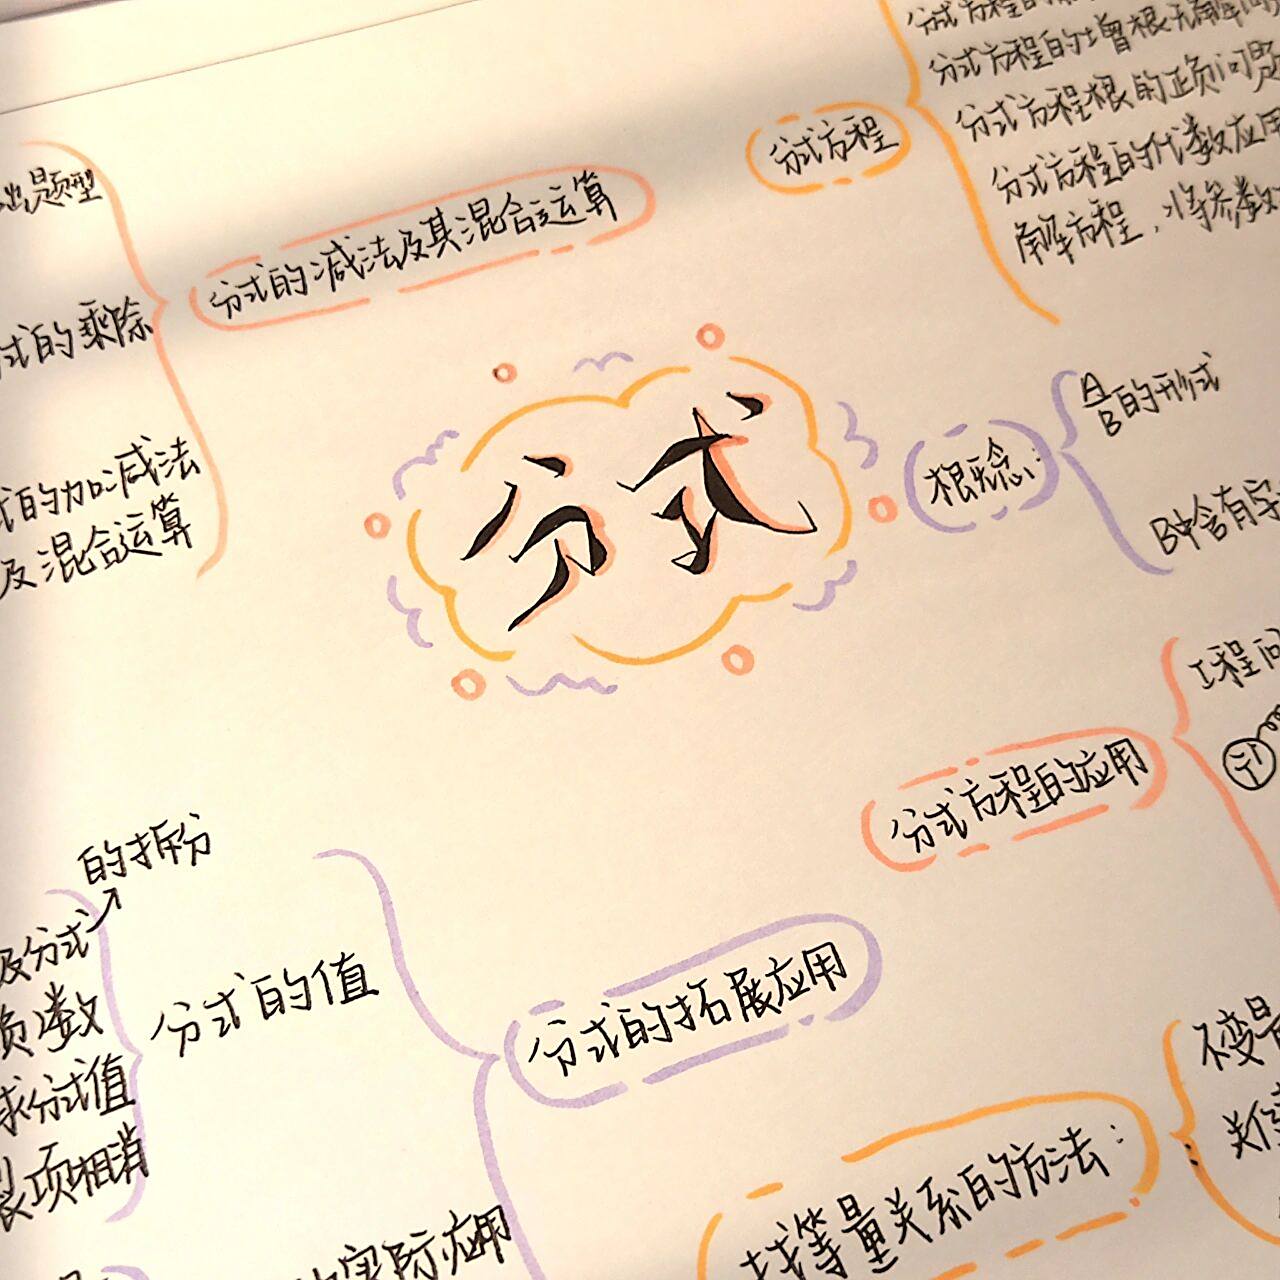 分式方程的增根无解问
分式方程根的正负问题
分式方程的代数应用
解方程，将参数
分式方程
题型
分式的减法及其混合运算
式的乘除
式的加减法
及混合运算
分式
概念：
A/B的形式
B中含有字
工程问
分式方程的应用
的拆分
及分式
负数
求分式值
裂项相消
分式的值
分式的拓展应用
实际应用
找等量关系的方法：
不变量
关键